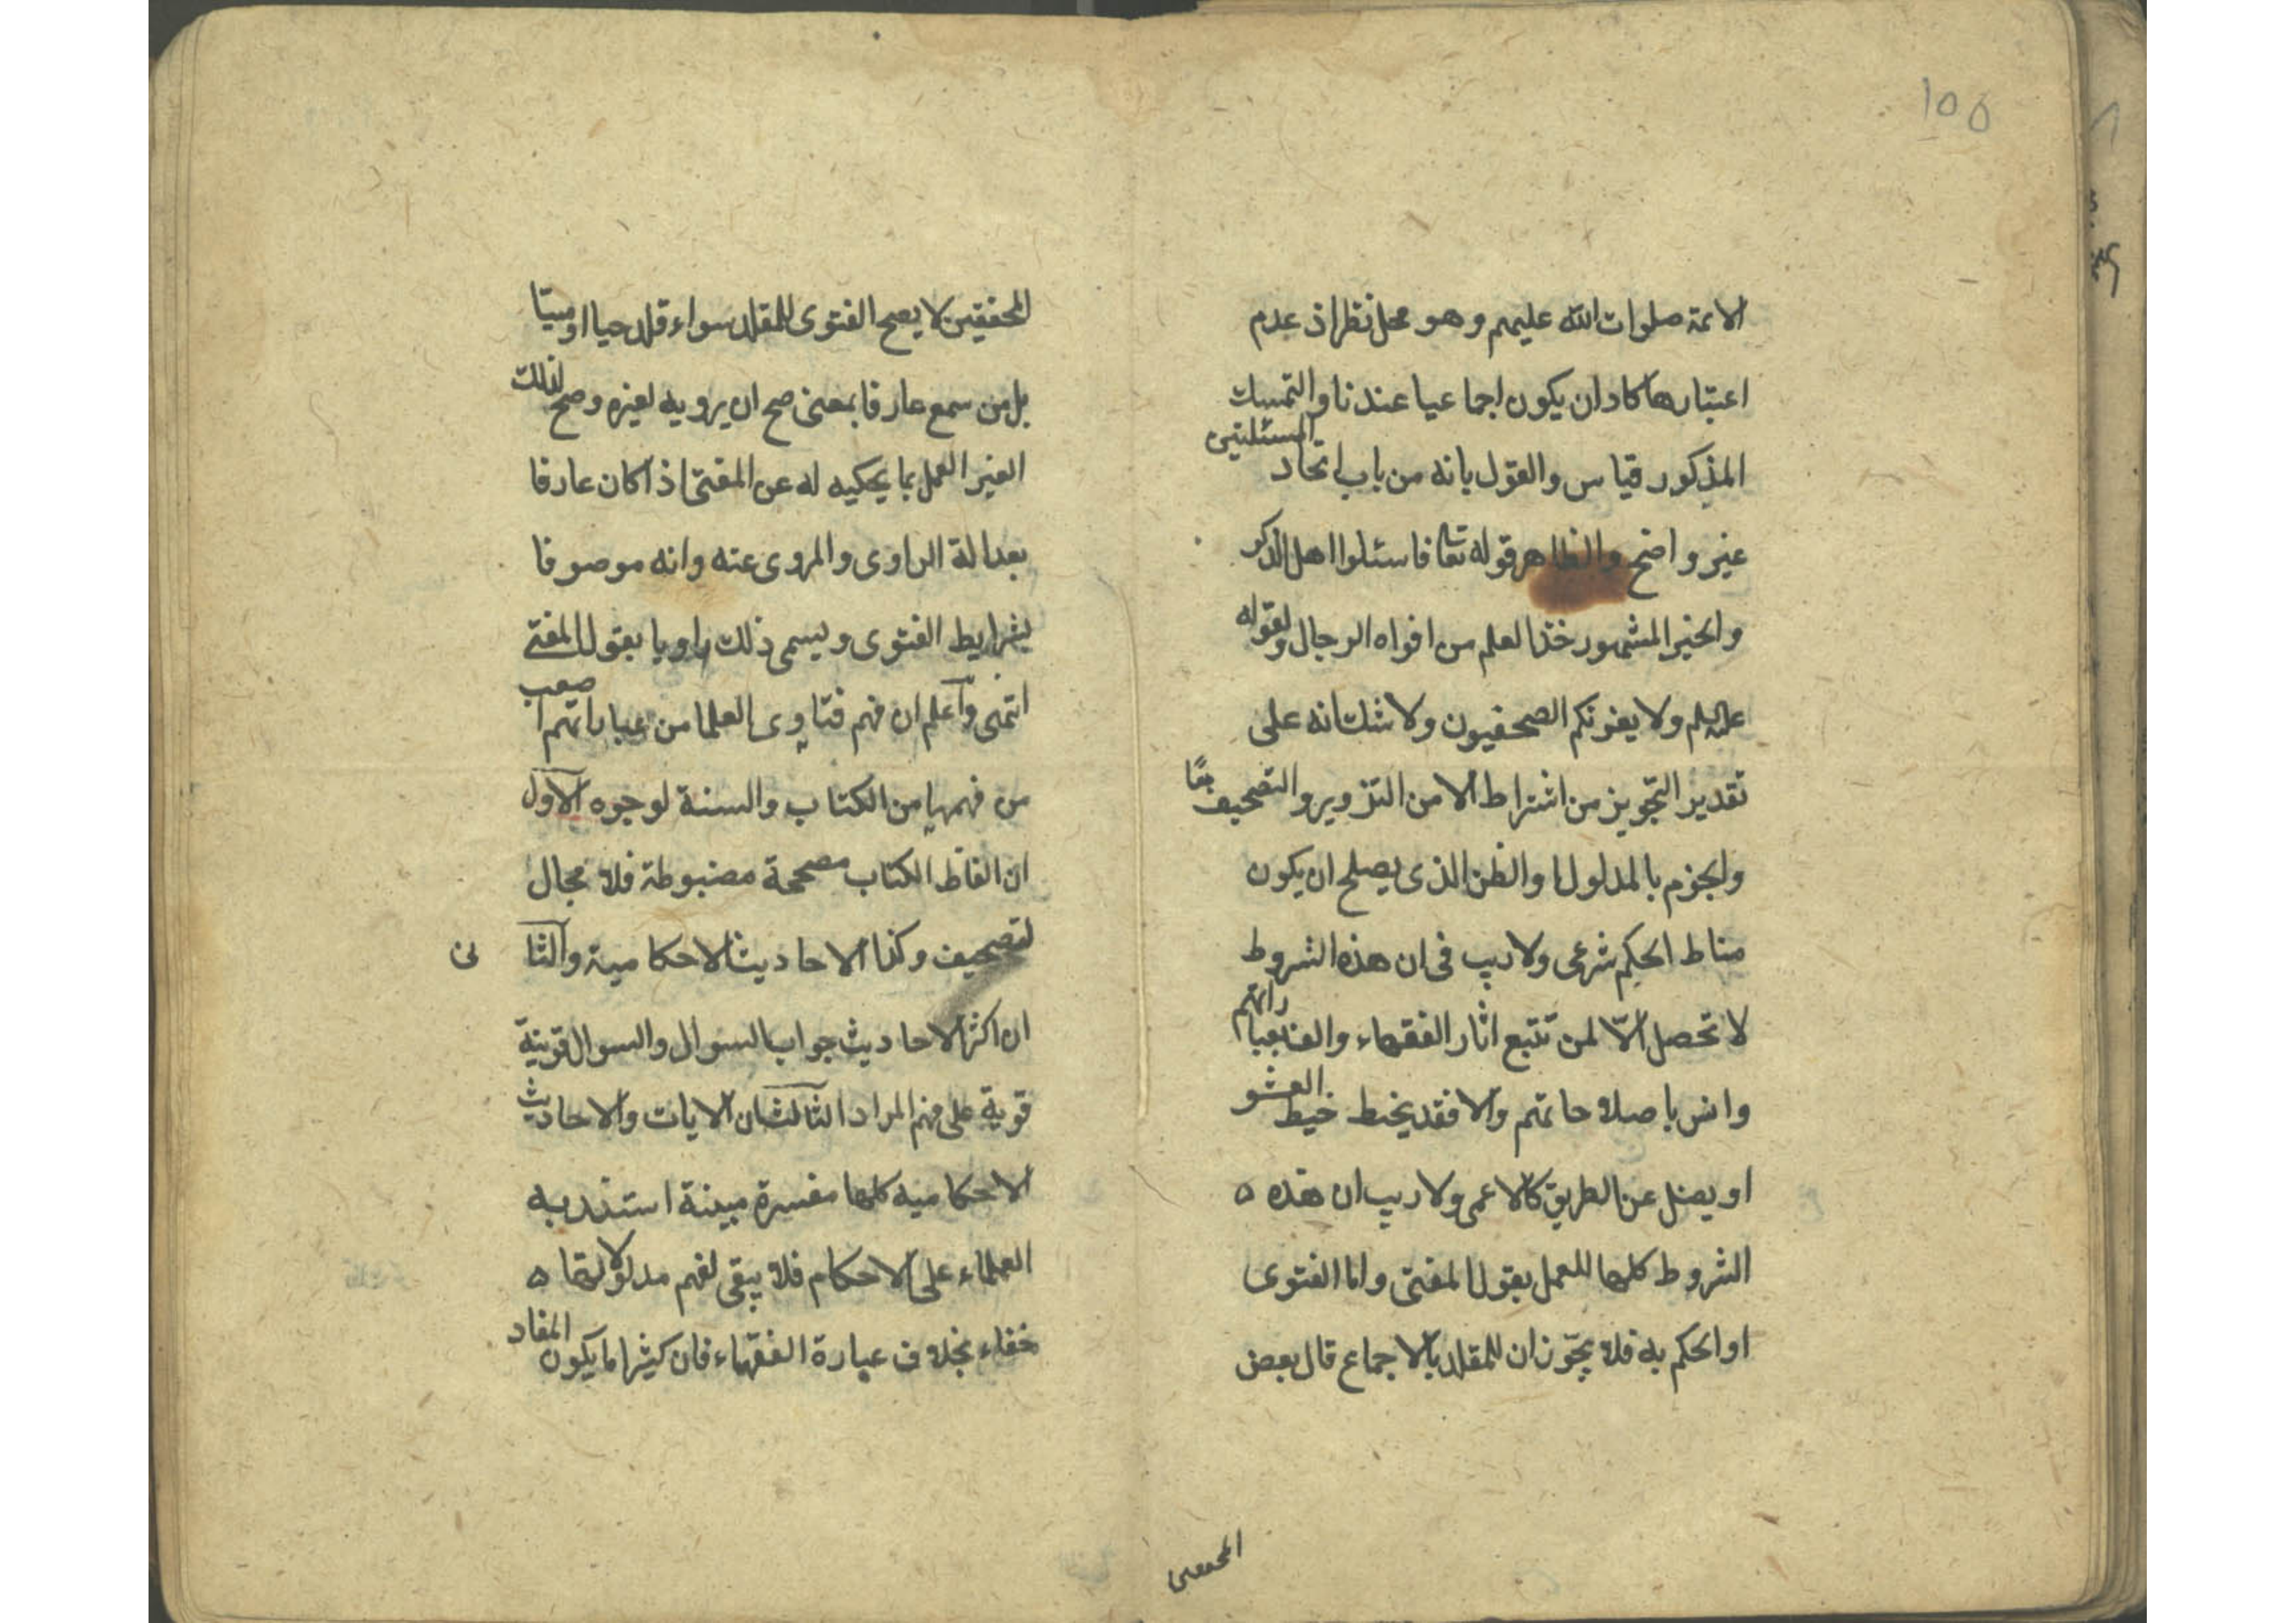 ١٥٥
الائمة صلوات الله عليهم وهو محل نظر اذ عدم
اعتبارها كاد ان يكون اجماعيا عندنا والتمسك
المذكور قياس والقول بانه من باب اتحاد المسئلتين
غير واضح والظاهر قوله تعا فاسئلوا اهل الذكر
والخبر المشهور خذ العلم من افواه الرجال ولقوله
عليه السلم ولا يغرنكم الصحفيون ولا شك انه على
تقدير التجويز من اشتراط الامن التزوير والتصحيف
والجزم بالمدلول او الظن الذي يصلح ان يكون
مناط الحكم شرعى ولا ريب فى ان هذه الشروط
لا تحصل الّا لمن تتبع اثار الفقهاء والف بعباراتهم
وانس باصلاحاتهم والا فقد يخبط خبط العشو
او يضل عن الطريق كالاعمى ولا ريب ان هذه ه
الشروط كلها للعمل بقول المفتى واما الفتوى
او الحكم به فلا يجوّزان للمقلد بالاجماع قال بعض
المحققين
المحققين لا يصح الفتوى للمقلد سواء قلد حيا او ميتا
بل من سمع عارفا بمعنى صح ان يرويه لغيره وصح لذلك
الغير العمل بما يحكيه له عن المفتى اذا كان عارفا
بعدالة الراوى والمروى عنه وانه موصوفا
بشرايط الفتوى ويسمى ذلك راويا بقول المفتى
انتهى واعلم ان فهم فتاوى العلما من عباراتهم اصعب
من فهمها من الكتاب والسنة لوجوه الاول
ان الفاظ الكتاب مصححة مضبوطة فلا مجال
لتصحيف وكذا الاحاديث الاحكامية والثا نى
ان اكثر الاحاديث جواب السوال والسوال قرينة
قوية على فهم المراد الثالث ان الايات والاحاديث
الاحكامية كلها مفسرة مبينة استند به
العلماء على الاحكام فلا يبقى لفهم مدلولاتها ه
خفاء بخلاف عبارة الفقهاء فان كثيرا ما يكون المفاد